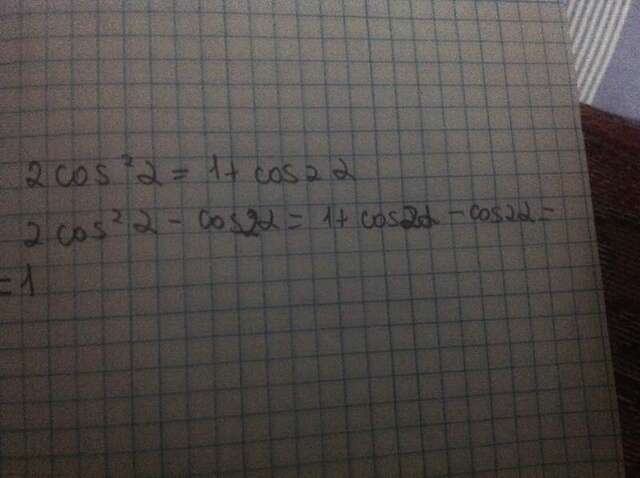 2 cos² α = 1 + cos 2α
2 cos² α - cos 2α = 1 + cos 2α - cos 2α =
= 1